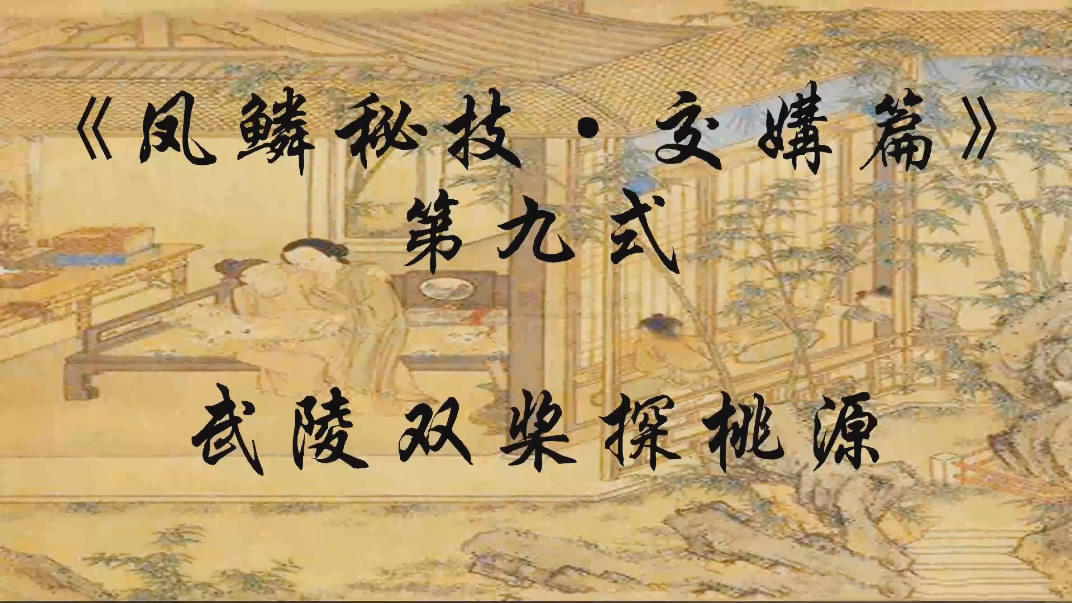 《凤鳞秘技·交媾篇》
第九式
武陵双桨探桃源